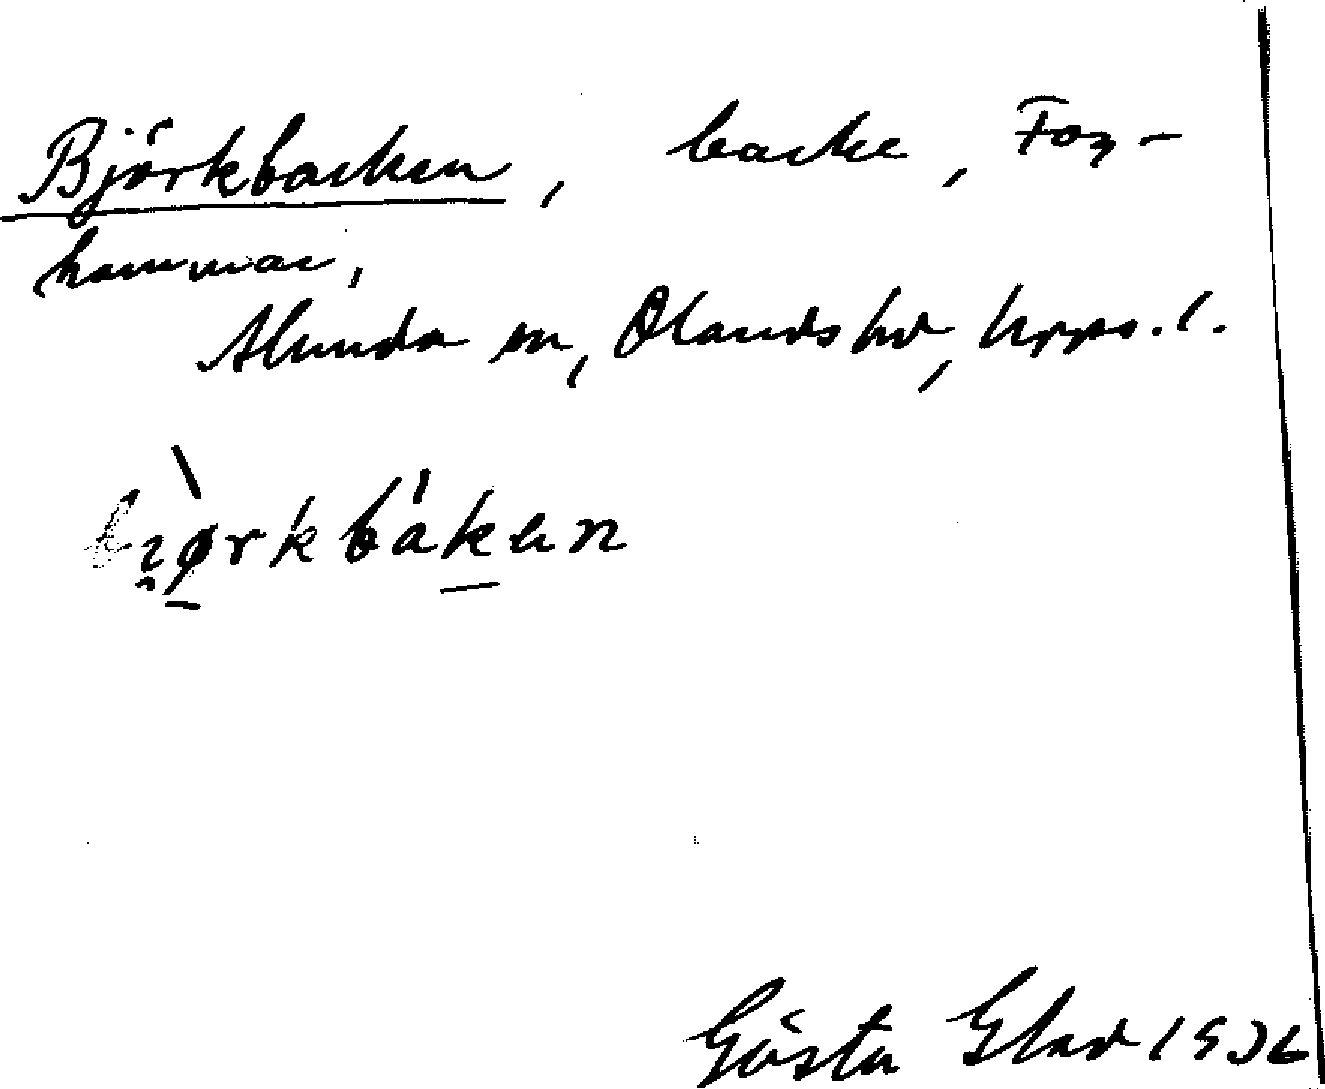 Björkbacken, backe, Foz-
hammar,
Alunda sn, Olands hd, Upps. l.
Gösta Glad 1936